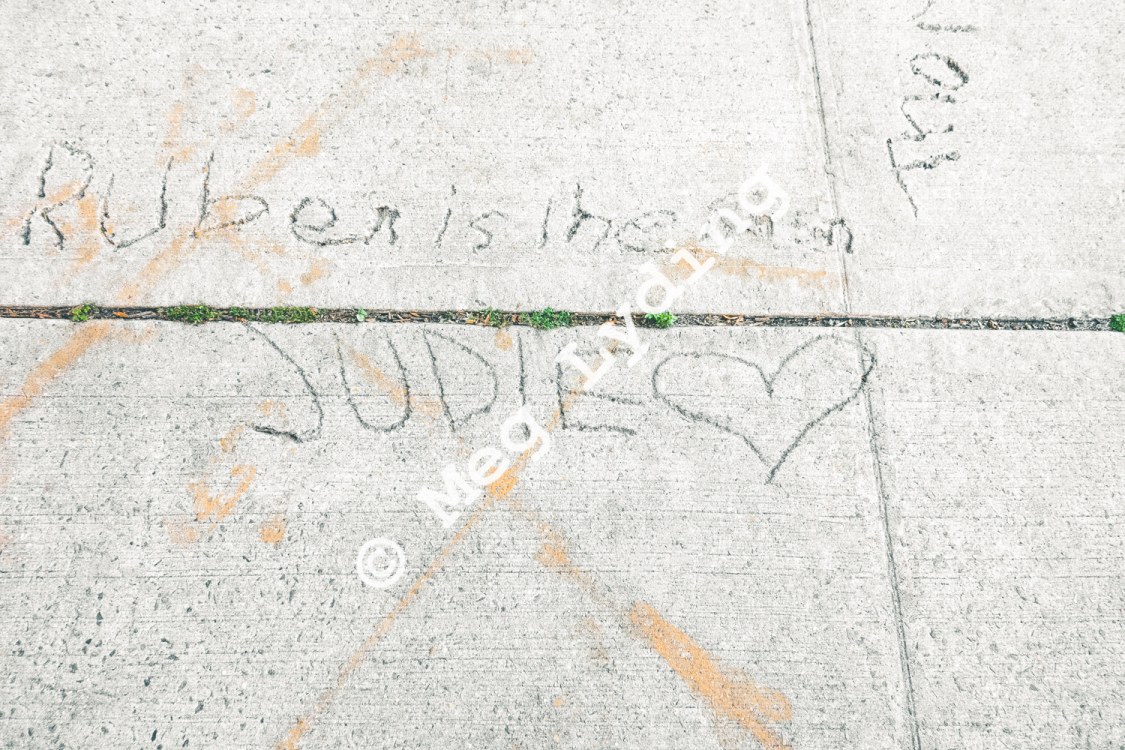 Ruben is the
JUDIE
Tho
© Meg Lyding